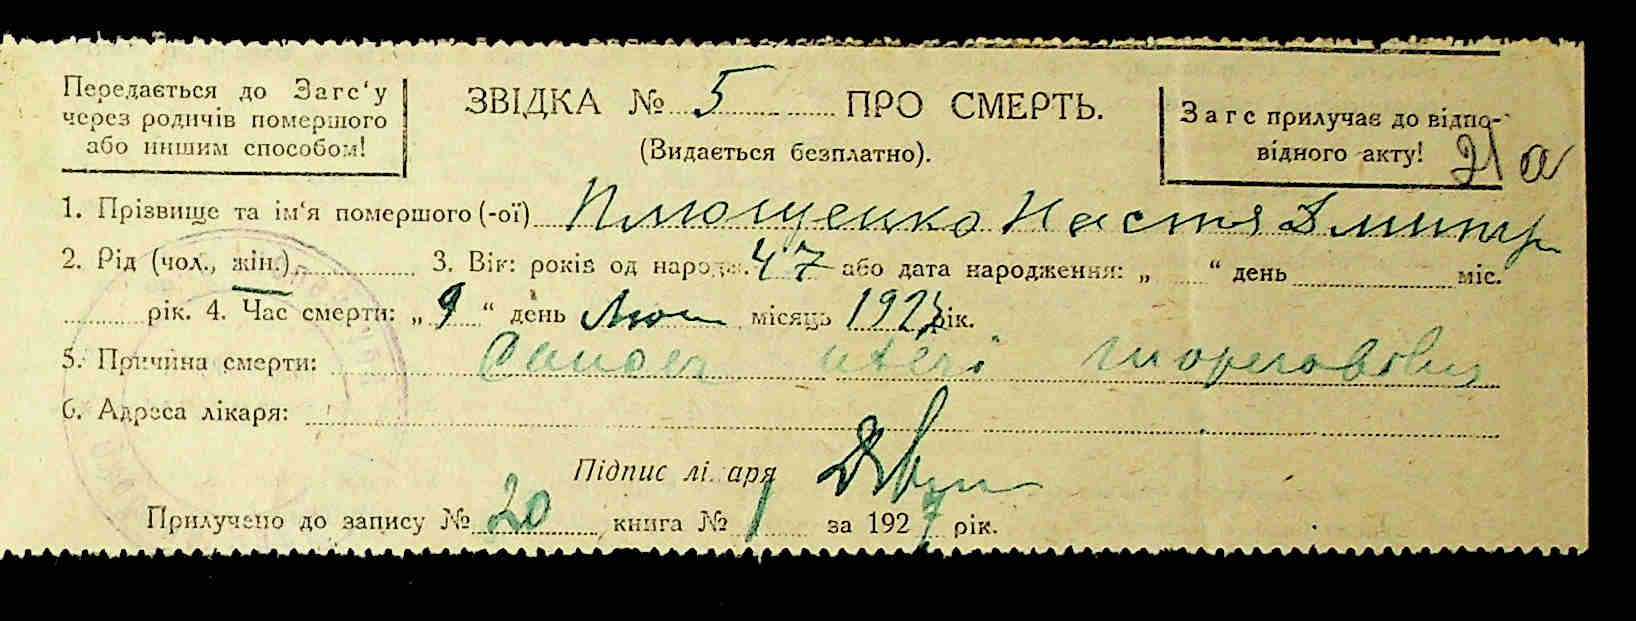 Передається до Загс'у
через родичів помершого
або иншим способом!
ЗВІДКА № 5 ПРО СМЕРТЬ.
(Видається безплатно).
Загс прилучає до відпо-
відного акту! 21 а
1. Прізвище та ім'я помершого (-ої) Плющенко Настя Дмитр
2. Рід (чол., жін.) 3. Вік: років од народж. 47 або дата народження: „ “ день міс.
рік. 4. Час смерти: „ 9 “ день Лют місяць 1927 рік.
5. Причина смерти: Cancer uteri inoperabilis
6. Адреса лікаря:
Підпис лі аря
Прилучено до запису № 20 книга № 1 за 1927 рік.